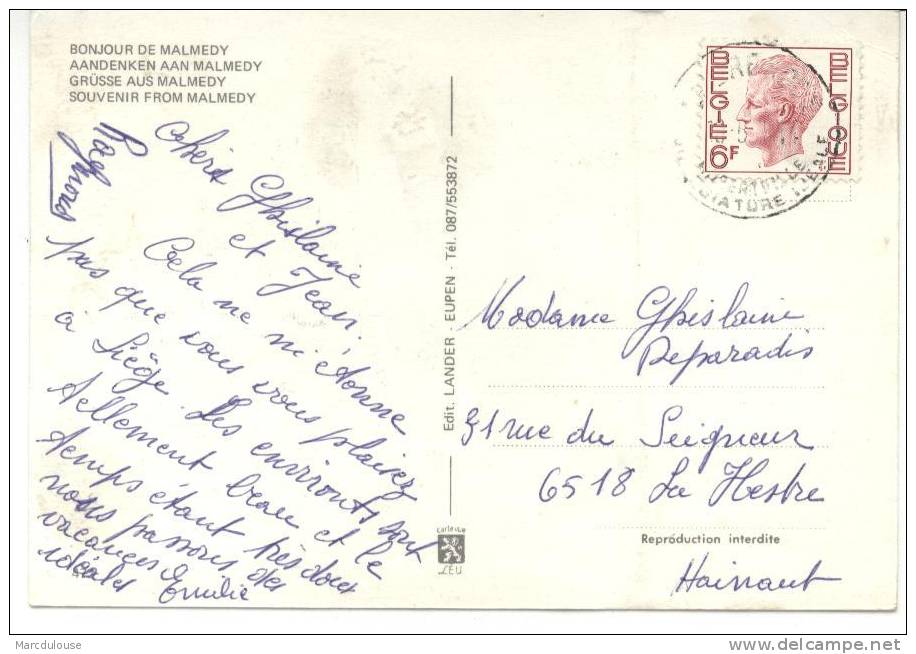 BONJOUR DE MALMEDY
AANDENKEN AAN MALMEDY
GRÜSSE AUS MALMEDY
SOUVENIR FROM MALMEDY
Ghislaine
et Jean,
Cela ne m'étonne
pas que vous vous plaisez
à Liège. Les environs sont
tellement beau et le
temps étant très doux
nous passons des
vacances
idéales Emilie
Edit. LANDER - EUPEN - Tél. 087/553872
carte vue
LEU
BELGIE 6F
BELGIQUE
Madame Ghislaine
Deparadis
31 rue du Seigneur
6518 La Hestre
Reproduction interdite
Hainaut
Marcdulouse
www.delcampe.net